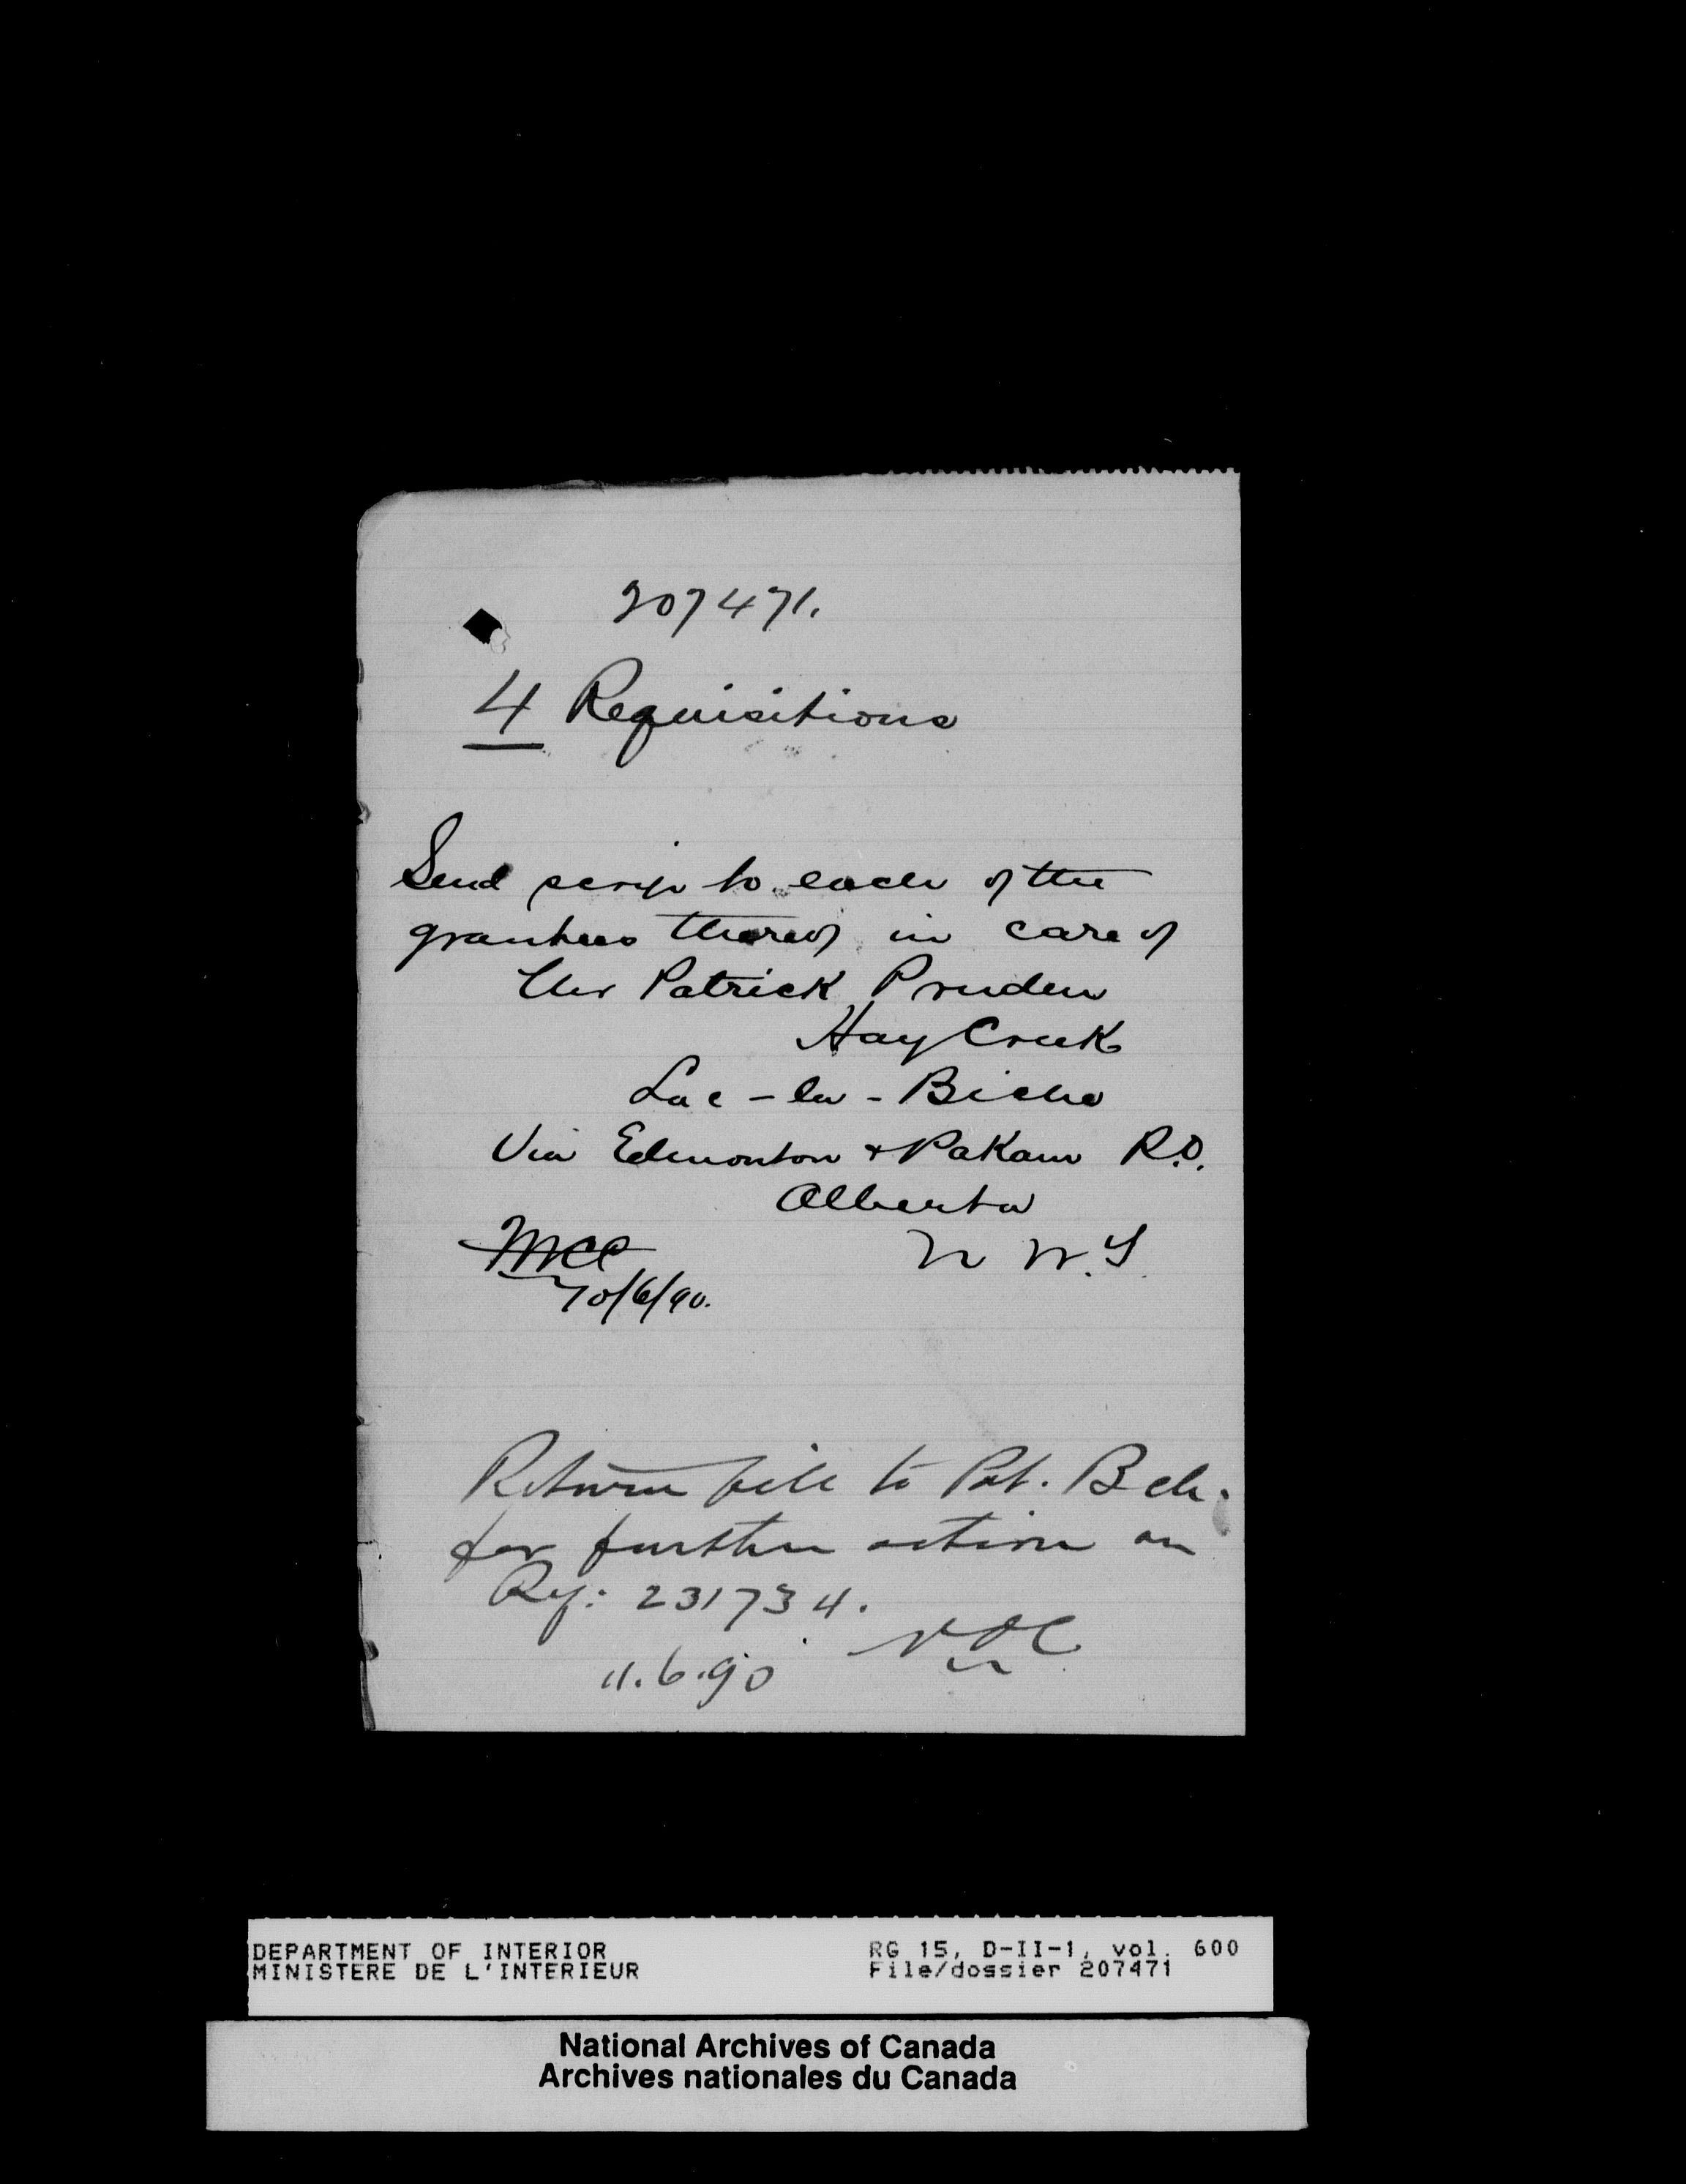 207471.
4 Requisitions
Send scrip to each of the
grantees thereof in care of
Mr Patrick Pruden
Hay Creek
Lac-la-Biche
Via Edmonton & Pakan P.O.
Alberta
N W.T.
10/6/90.
Return file to Pat. Bch.
for further action on
Ref: 231734.
11.6.90
DEPARTMENT OF INTERIOR
MINISTERE DE L'INTERIEUR
RG 15, D-II-1, vol. 600
File/dossier 207471
National Archives of Canada
Archives nationales du Canada